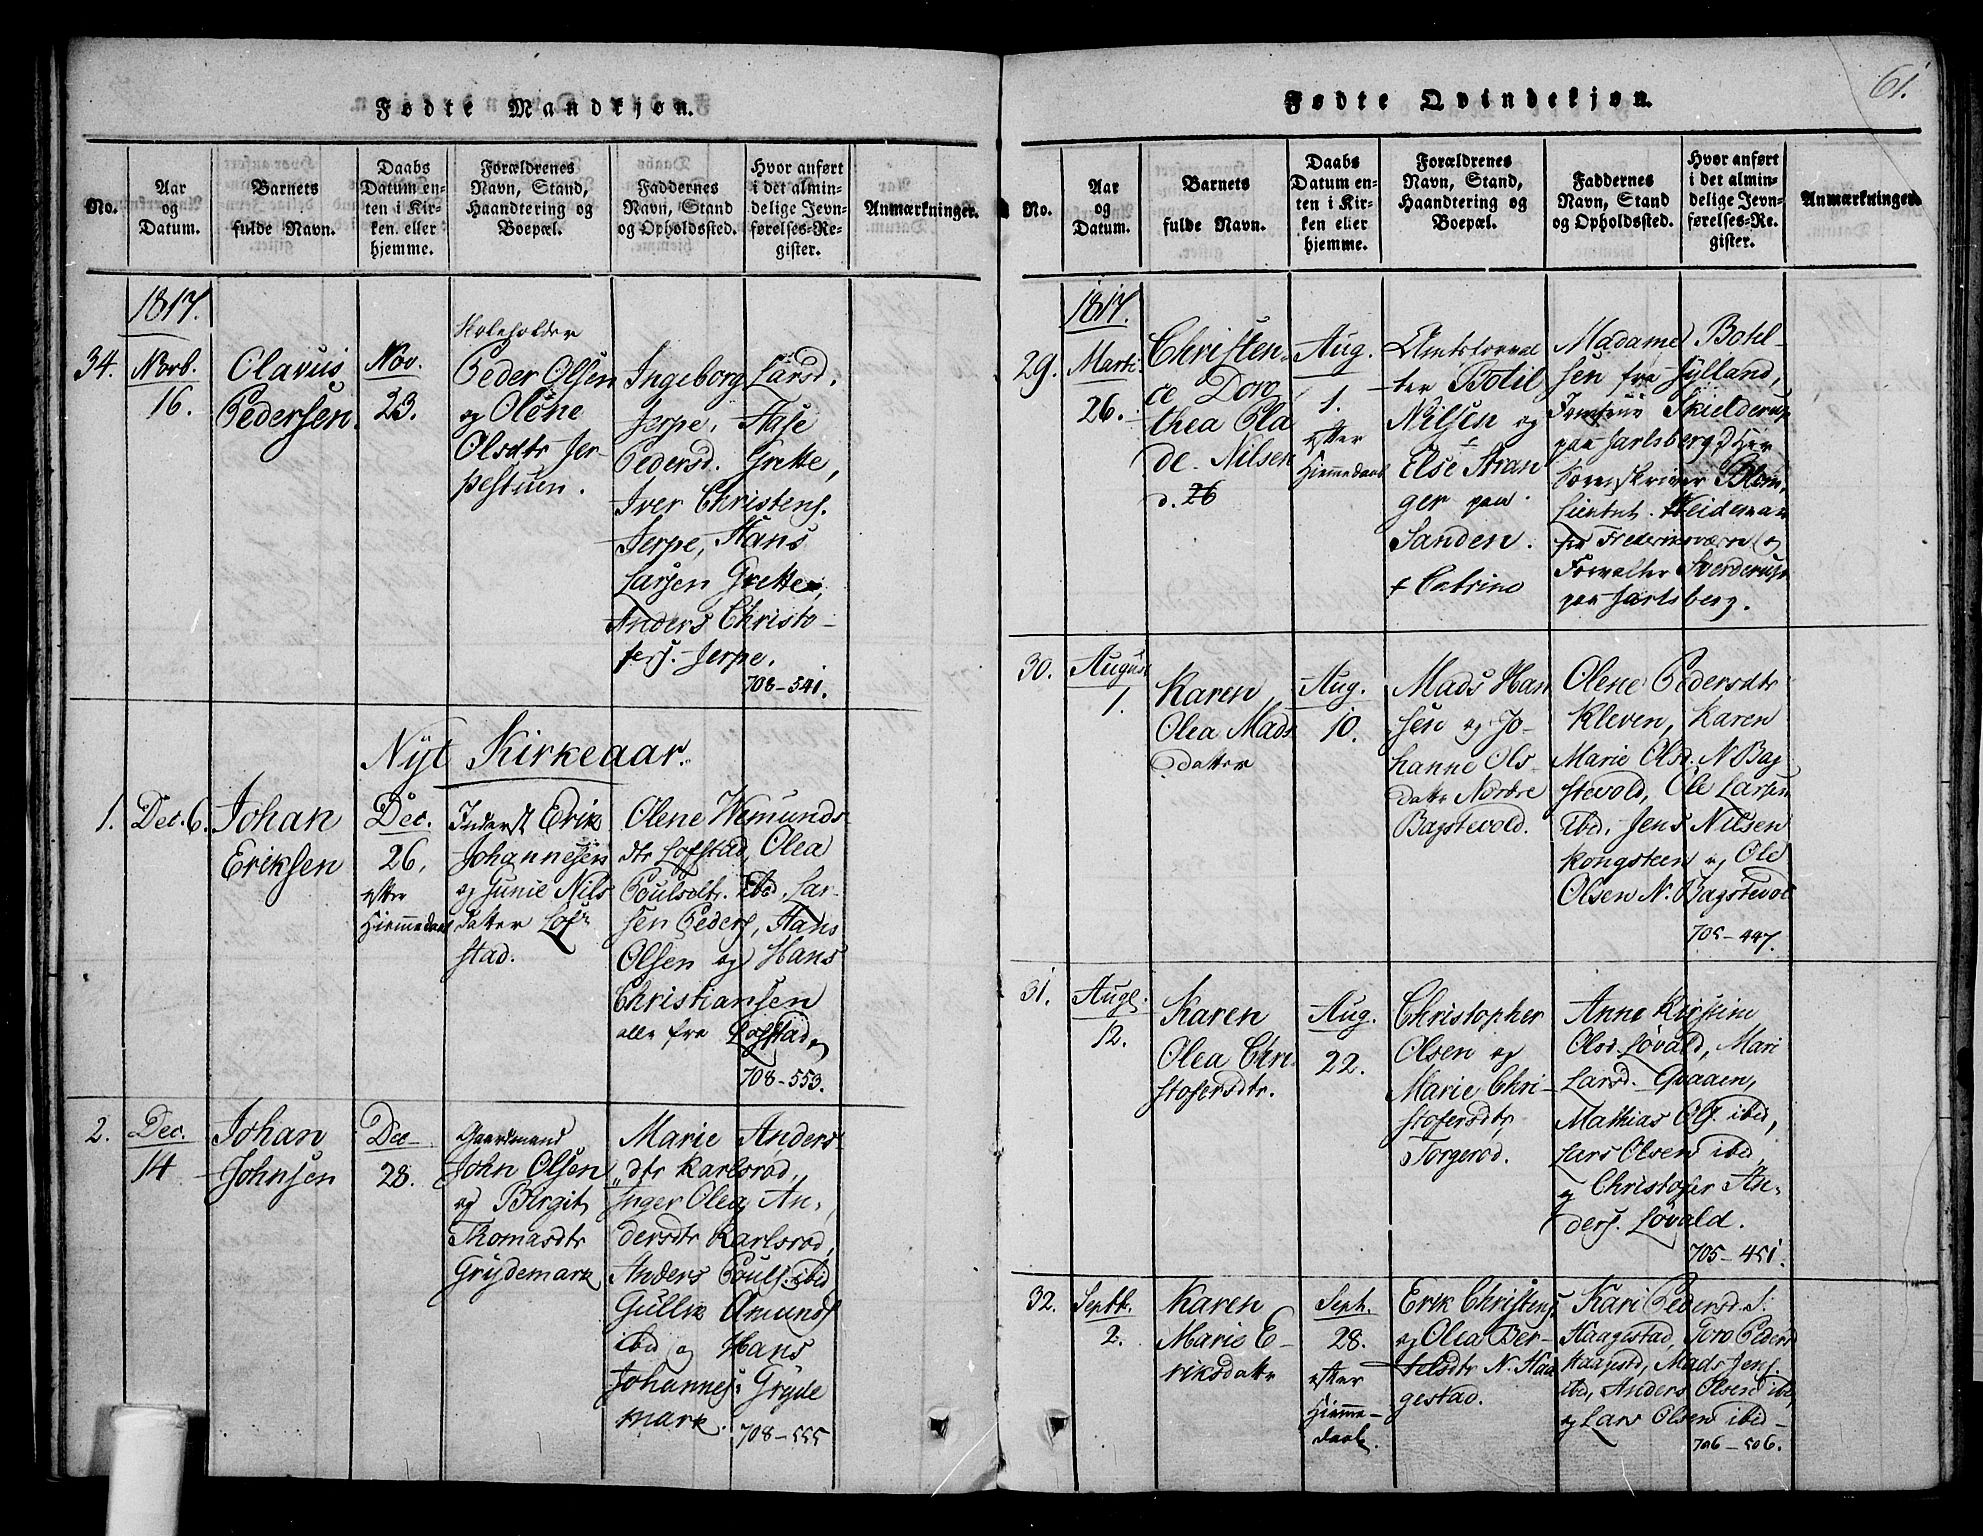 61.
Fødte Mandkjøn.
No.
Aar
og
Datum.
Barnets
fulde Navn.
Daabs
Datum en-
ten i Kir-
ken eller
hjemme.
Forældrenes
Navn, Stand,
Haandtering og
Boepæl.
Faddernes
Navn, Stand
og Opholdssted.
Hvor anført
i det almin-
delige Jevn-
førelses-Re-
gister.
Anmærkninger.
1817.
34.
Novb.
16.
Olavus
Pedersen.
Nov.
23.
Peder Olsen
og Olene
Olsdtr Jer-
pestuen.
Ingeborg Larsd.
Jerpe, Aase
Pedersd. Grette,
Iver Christens.
Jerpe, Hans
Larsen Grette,
Anders Christo-
fers. Jerpe.
708-541.
Nyt Kirkeaar.
1.
Dec. 6.
Johan
Eriksen
Dec.
26,
efter
Hiemmedaab
Inderst Erik
Johannesen
og Gunie Nils
datter Lof-
stad.
Olene Wemunds
dtr Lofstad, Olea
Poulsdtr. ibd, Lar-
sen Peders, Hans
Olsen og Hans
Christiansen
alle fra Lofstad
708-553.
2.
Dec.
14
Johan
Johnsen
Dec
28.
Gaardmand
John Olsen
og Birgit
Thomasdtr
Grydemark
Marie Anders
dtr Karlsrød,
Inger Olea An-
dersdtr Karlsrød,
Anders Pouls. ibid
Gullik Amunds
ibid og Hans
Johannes: Gryde
mark.
708-555
Fødte Qvindekjøn.
No.
Aar
og
Datum.
Barnets
fulde Navn.
Daabs
Datum en-
ten i Kir-
ken eller
hjemme.
Forældrenes
Navn, Stand,
Haandtering og
Boepæl.
Faddernes
Navn, Stand
og Opholdssted.
Hvor anført
i det almin-
delige Jevn-
førelses-Re-
gister.
Anmærkninger.
1817.
29.
Marti
26.
Christen-
ce Doro
thea Ela
de Nilsen
d. 26
Aug.
1.
efter
Hiemmedaab
Amtsforval
ter Botil
Nilsen og
Else Stran
ger paa
Sanden.
+ Catrine
Madame Botil-
sen fra Jylland,
Jomfrue Skielderup
paa Jarlsberg, Hr
Kornskriver
Lieutnt. Heideman
fra Frederiksværn og
Forvalter Sverdrup
paa Jarlsberg.
30.
August
1.
Karen
Olea Mads
datter
Aug.
10.
Mads Han
sen og Jo-
hanne Ols-
datter Nordre
Bagstevold.
Olene Pedersdtr
Kleven, Karen
Marie Olsd. N. Bag
stevold, Ole Larsen
ibd. Jens Nilsen
Kongsteen og Ole
Olsen N. Bagstevol
705-447.
31.
Augt.
12.
Karen
Olea Chri-
stofersdtr.
Aug.
22.
Christopher
Olsen og
Marie Chri-
stofersdtr,
Torgerød.
Anne Kirstine
Olsd. Løvald, Mari
Larsd. Graaen,
Mathias Ols. ibid,
Lars Olsen ibid,
og Christofer An-
ders. Løvald.
705-451.
32.
Septb.
2.
Karen
Marie E-
riksdatter
Sept.
28.
efter
Hiemme-
daab.
Erik Christens.
og Olea Ber-
telsdtr N. Haa
gestad.
Kari Pedersd. S.
Haagestad, Goro Peders
Haagestd, Mads Jens.
ibid, Anders Olsen ibid
og Lars Olsen ibid-
706-506.